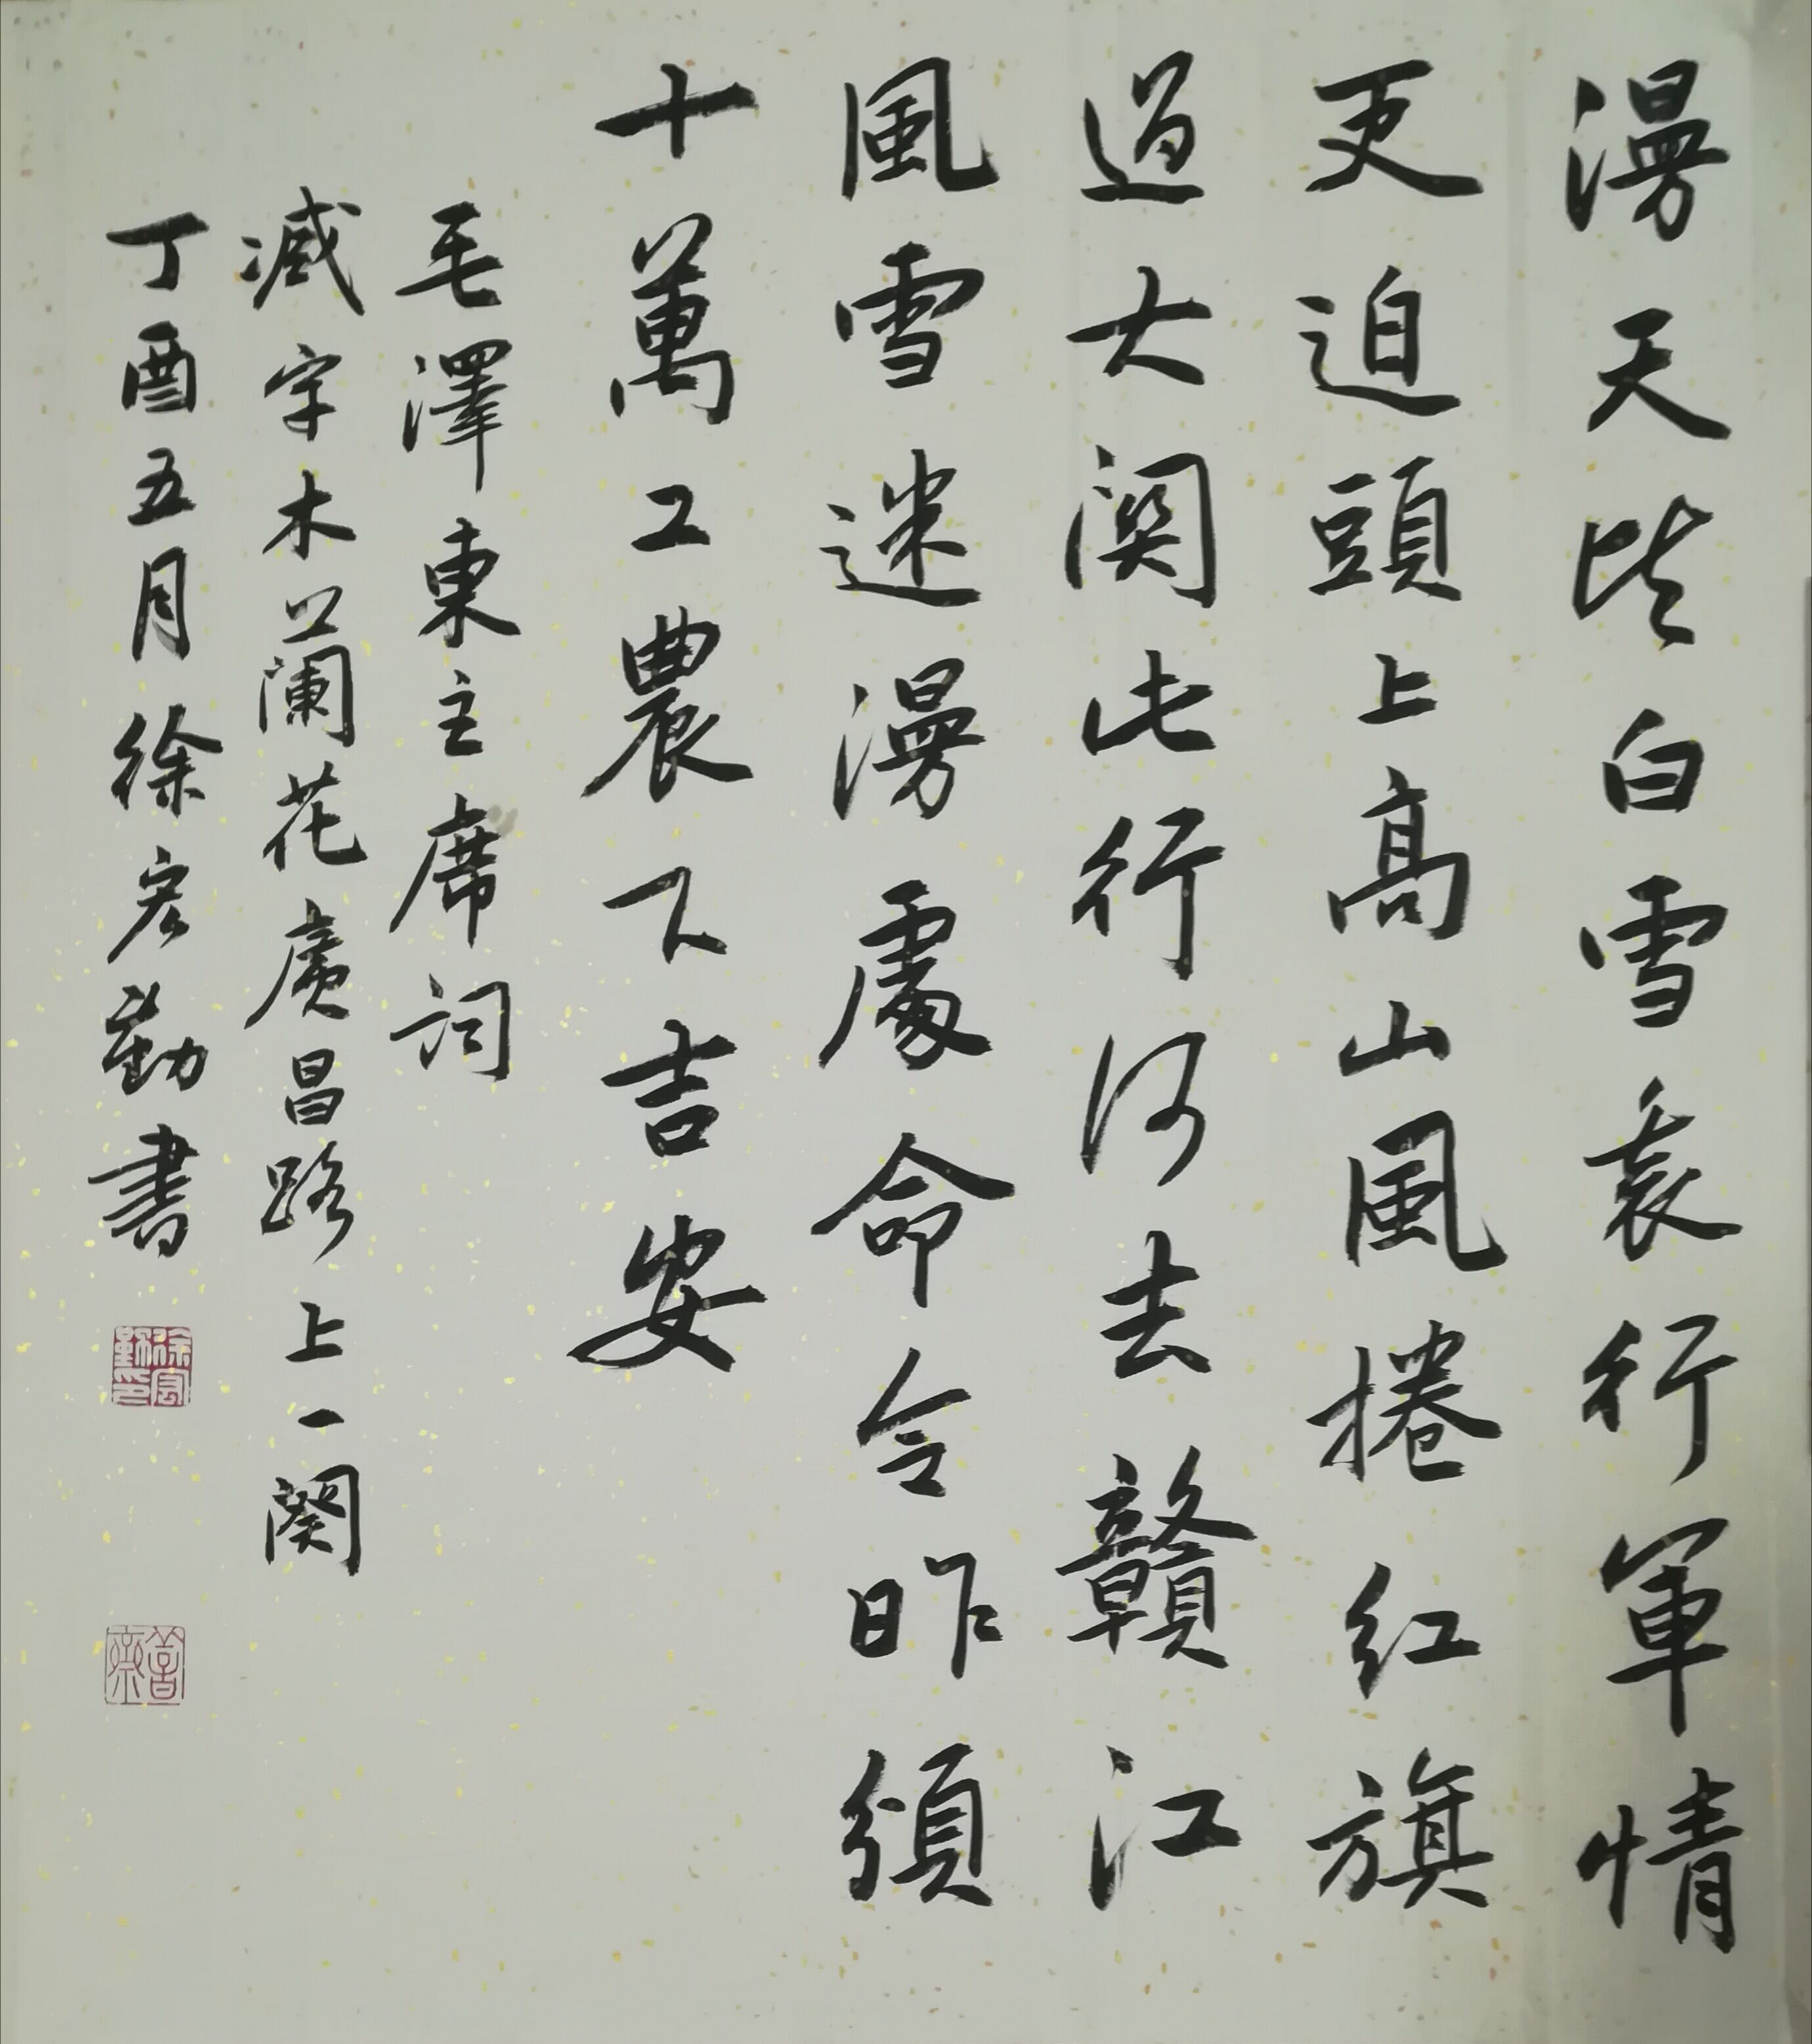 漫天皆白雪裏行軍情
更迫頭上高山風捲红旗
過大関此行何去贛江
風雪迷漫處命令昨頒
十萬工農下吉安
毛澤東主席词
減字木蘭花廣昌路上一闋
丁酉五月徐宏勤書
徐宏勤印